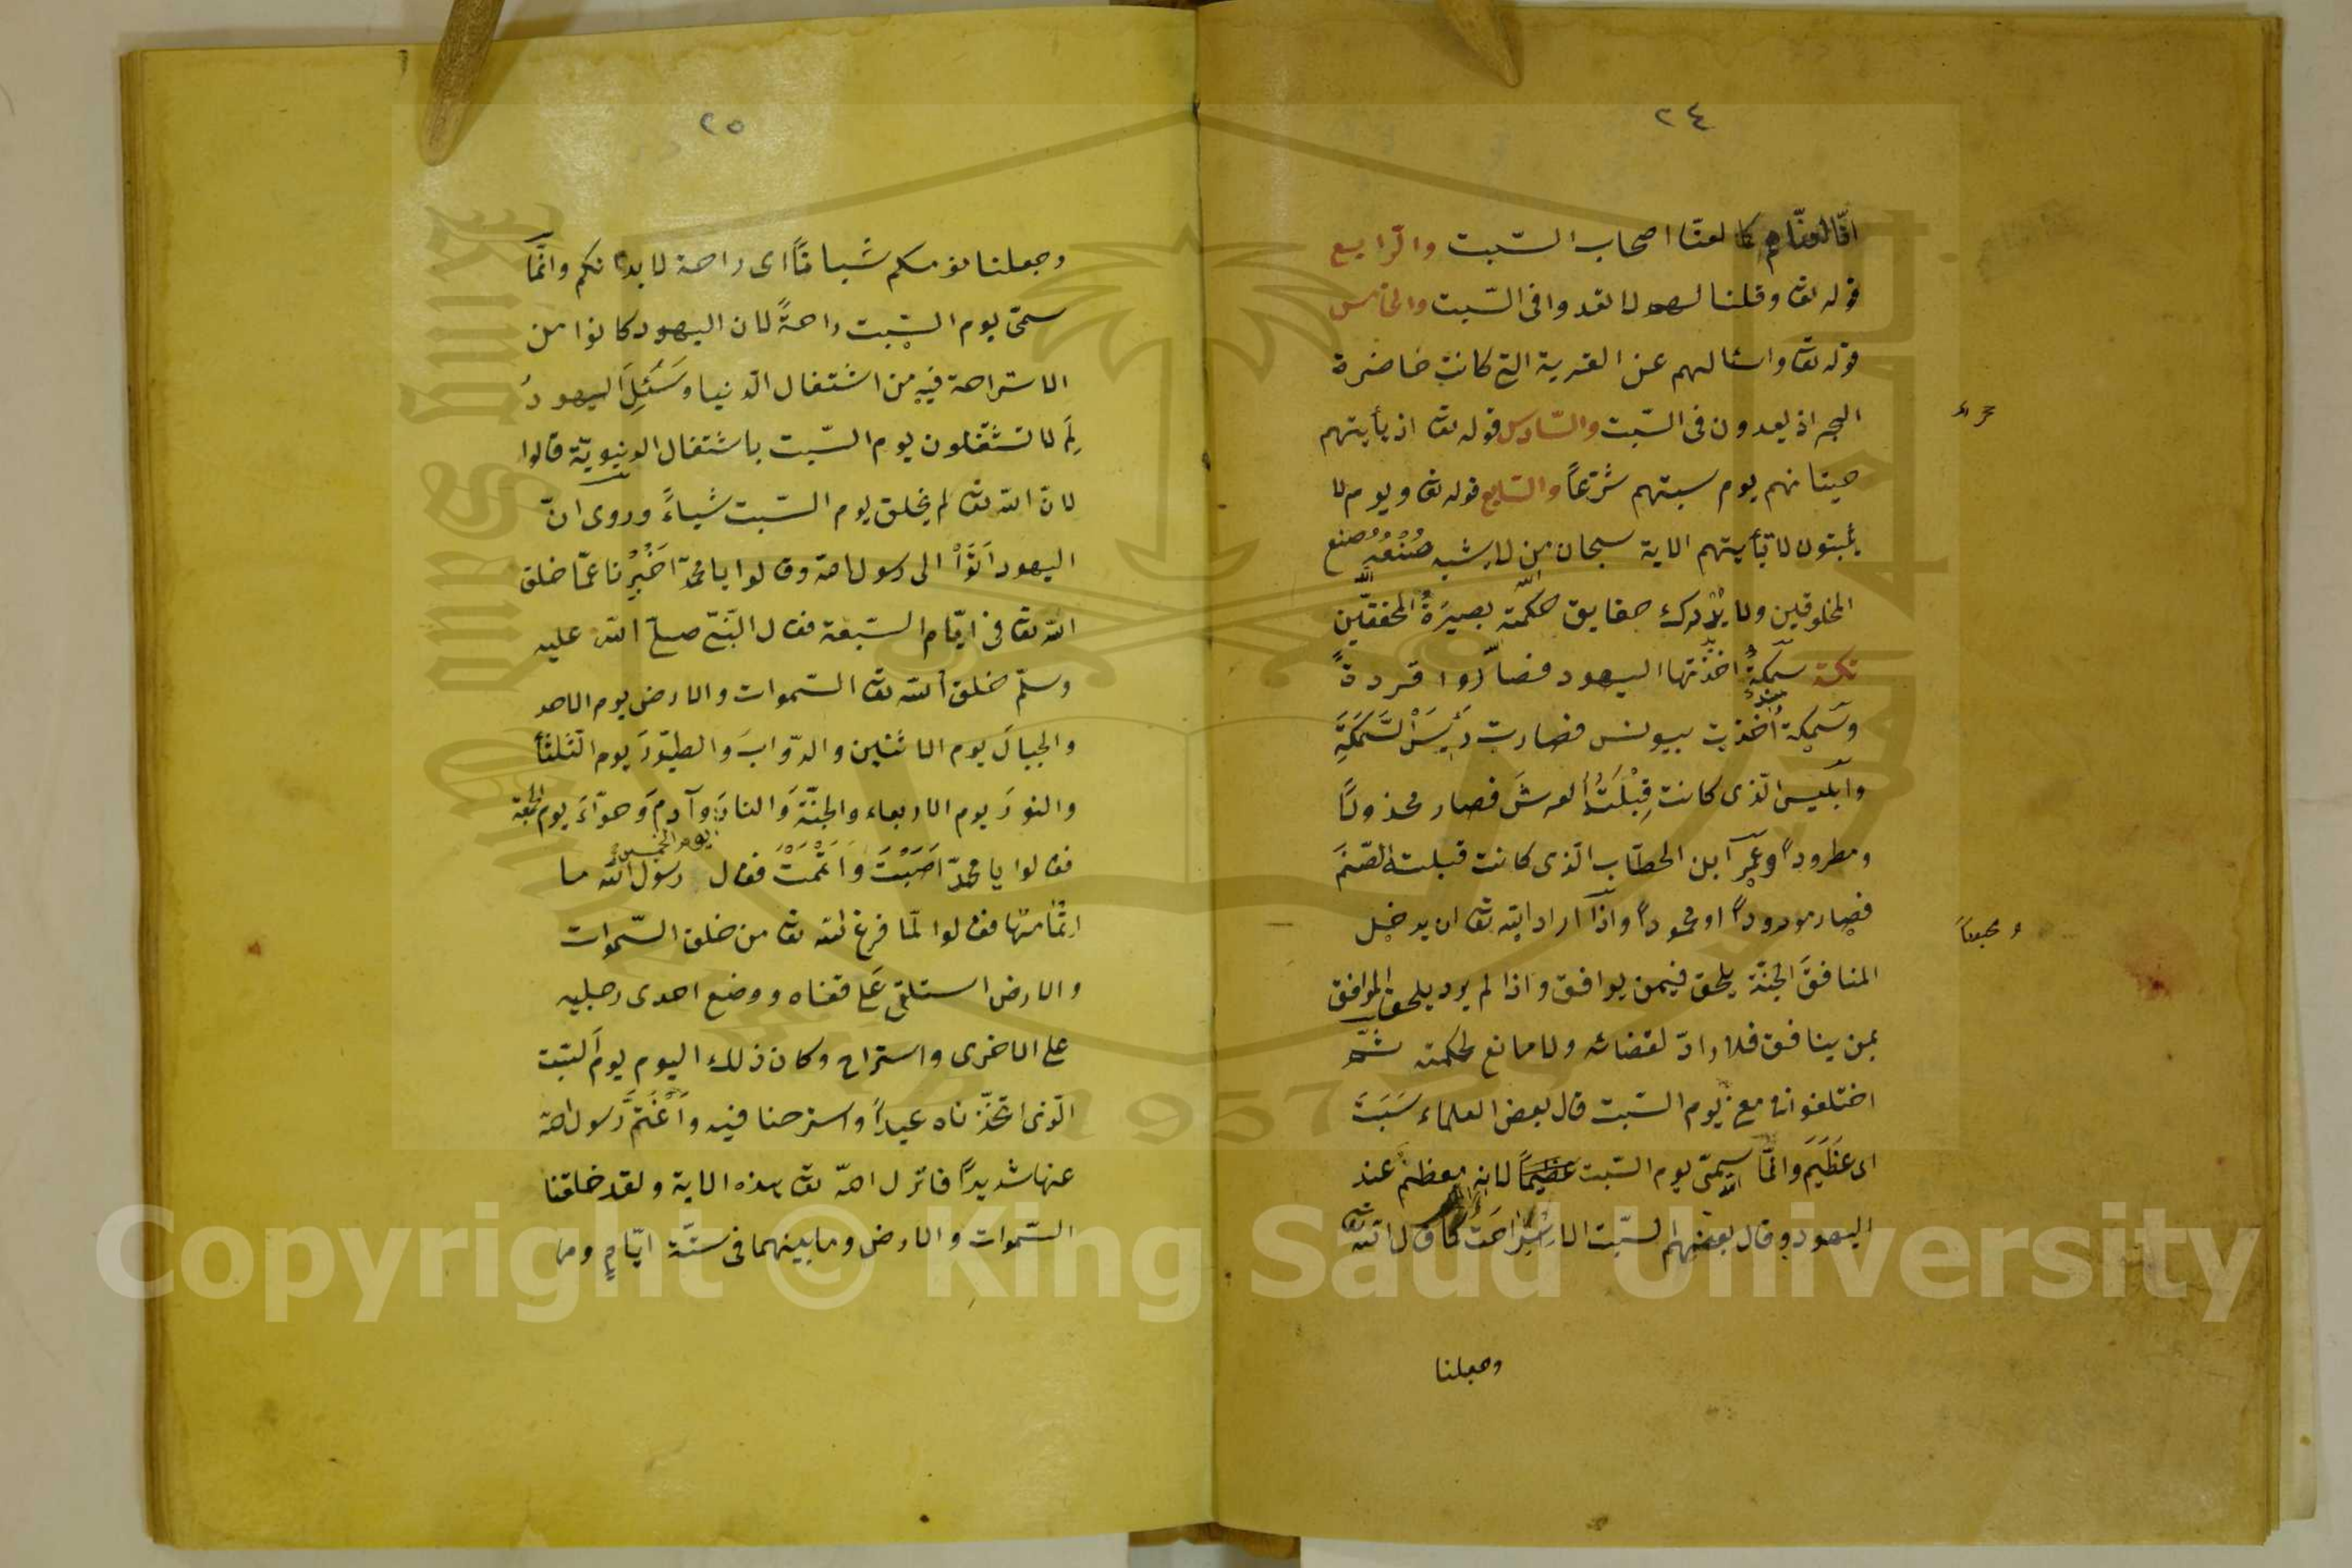 ٢٤
انّا لعنّاهم كما لعنّا اصحاب السّبت والرّابع
قوله تع وقلنا لهم لا تعدوا فى السّبت والخامس
قوله تع واسئالهم عن القرية التى كانت حاضرة
البحر اذ يعدون فى السّبت والسّادس قوله تع اذ تأيتهم
حيتانهم يوم سبتهم شرّعاً والسّابع قوله تع ويوم لا
يسبتون لا تأيتهم الاية سبحان من لا يشبه صُنْعُهُ صنع
المخلوقين ولا يدرك حقايق حكمته بصيرةُ المحققّين
نكتة سمكةٌ اخذتها اليهود فصاروا قردةً
وسمكة اُخذت بيونس فصارت رَئِيسَ السَّمَكَةِ
وابليس الّذى كانت قِبْلَتُهُ العرشَ فصار مخذولاً
ومطروداً وعمر ابن الخطّاب الّذى كانت قبلته الصّنمَ
فصار مودوداً او محموداً واذا اراد الله تع ان يدخل
المنافقَ الجنّة يلحق فيمن يوافق واذا لم يرد يلحق الموافق
بمن ينافق فلا رادّ لقضائه ولا مانع لحكمته ثمّ
اختلفوا فى معنى يوم السّبت قال بعض العلماء سَبَتَ
اى عَظَّمَ وانّما سمّى يوم السّبت عظيماً لانه معظّم عند
اليهود وقال بعضهم السّبت الاستراحَةُ كما قال الله تع
وجعلنا
٢٥
وجعلنا نومكم سُباتاً اى راحة لابدانكم وانّما
سمّى يوم السّبت راحةً لان اليهود كانوا من
الاستراحة فيه من اشتغال الدّنيا وَسُئِلَ اليهودُ
لِمَ لا تشتغلون يوم السّبت باشتغال الدنيويّة قالوا
لانّ الله تع لم يخلق يوم السّبت شياءً وروى انّ
اليهود اَتَوْا الى رسول الله وقالوا يا محمّد اَخْبِرْنا عمّا خلق
الله تع فى ايّام السّبعة فقال النّبىّ صلّى الله عليه
وسلّم خلق الله تع السّموات والارض يوم الاحد
والجبالَ يوم الاثنين والدّوابَ والطيّورَ يوم الثّلثأ
والنورَ يوم الاربعاء والجنّةَ والنارَ وآدمَ وحوّاءَ يوم الجمعة
يوم الخميس
فقالوا يا محمّد اَصَبْتَ وَاَتْمَمْتَ فقال رسول الله ما
اتمامها فقالوا لمّا فرغ الله تع من خلق السّموات
والارض استلقى عَلى قفاه ووضع احدى رجليه
على الاخرى واستراح وكان ذلك اليوم يومَ السّبت
الّذى اتّخذناه عيداً واسترحنا فيه وَاَغْتَمَّ رسول الله
عنها شديداً فانزل الله تع هذه الاية ولقد خلقنا
السّموات والارض وما بينهما فى ستّة ايّامٍ وما
Copyright © King Saud University
1957